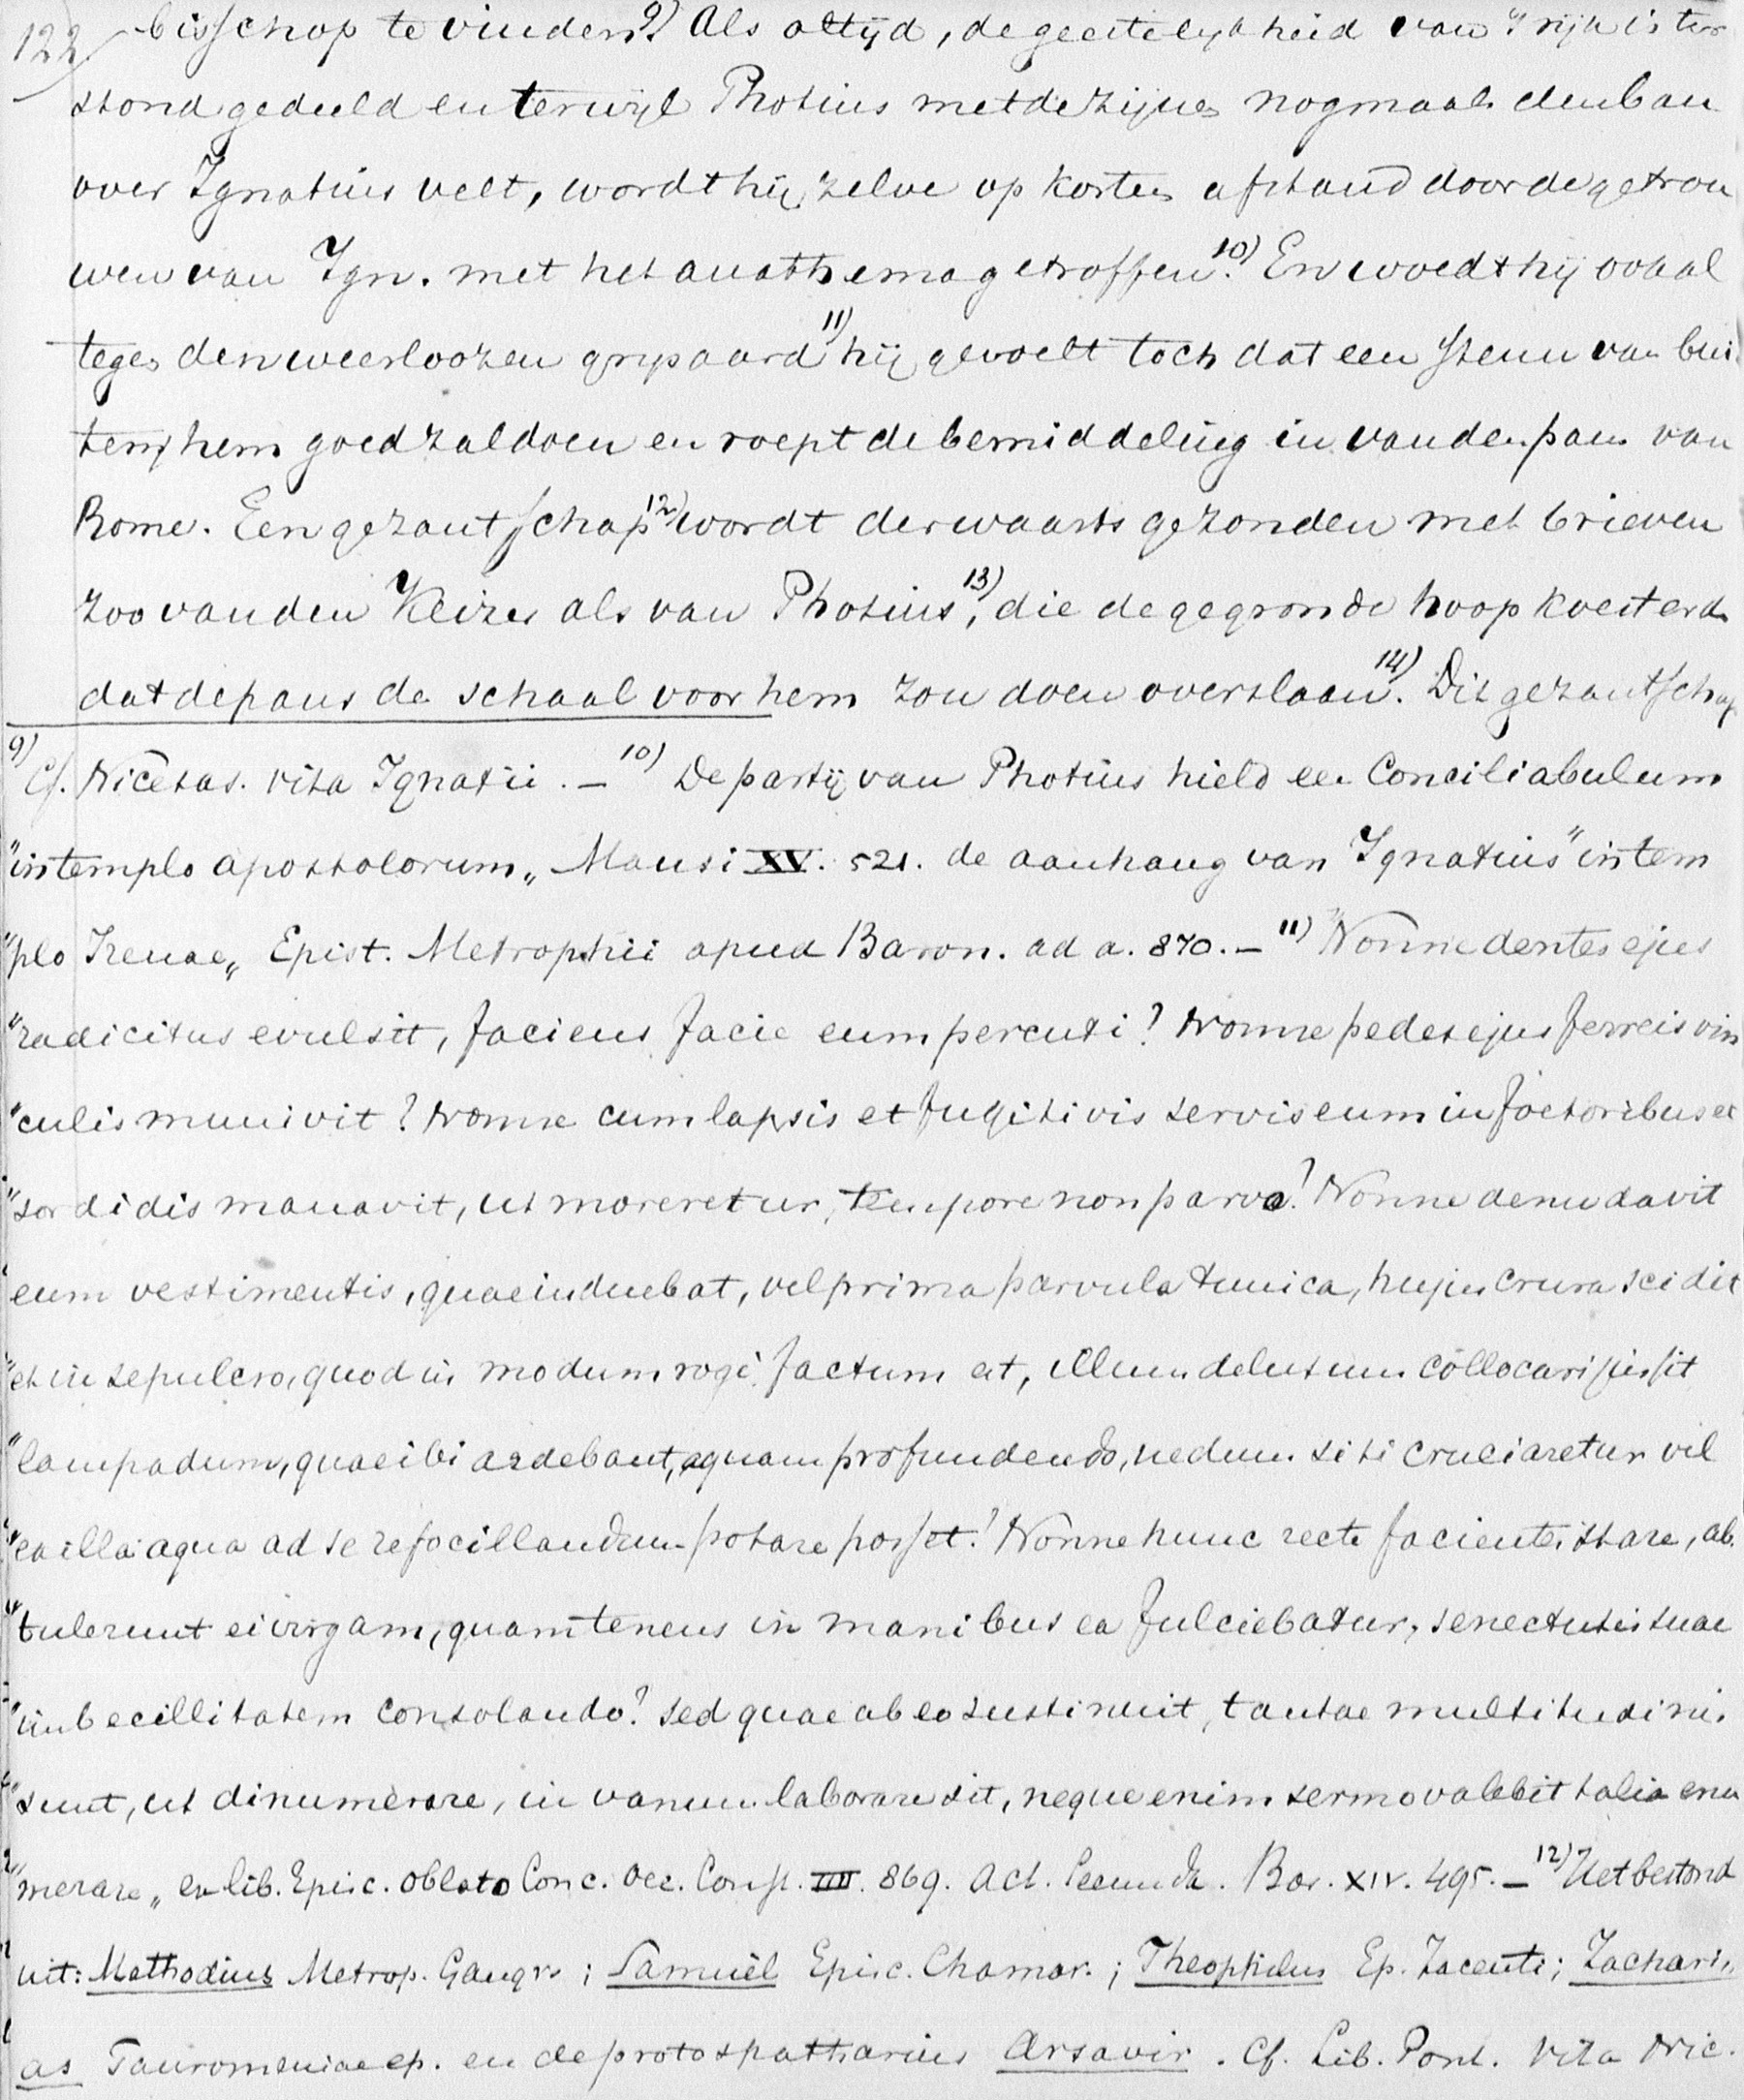 122/ bisschop te vinden.9) Als altijd, de geestelijkheid van 't rijk is ter
stond gedeeld en terwijl Photius met de zijnen nogmaals den ban
over Ignatius velt, wordt hij zelve op korten afstand door de getrou
wen van Ign. met het anathema getroffen.10) En woedt hij ook al
tegen den weerloozen grijsaard11) hij gevoelt toch dat een steun van bui
ten hem goed zal doen en roept de bemiddeling in van den paus van
Rome. Een gezantschap12) wordt derwaarts gezonden met brieven
zoo van den Keizer als van Photius,13) die de gegronde hoop koesterde
dat de paus de schaal voor hem zou doen overslaan.14) Dit gezantschap
9) Cf. Nicêtas. vita Ignatii. — 10) De partij van Photius hield een Conciliabulum
"in templo apostolorum„ Mansi XV. 521. de aanhang van Ignatius "in tem
"plo Irenae„ Epist. Metrophii apud Baron. ad a. 870. — 11) "Nonne dentes ejus
"radicitus evulsit, faciens facie eum percuti? Nonne pedes ejus ferreis vin
"culis munivit? Nonne cum lapsis et fugitivis servis eum in foetoribus et
"sordidis manavit, ut moreretur, tempore non parvo? Nonne denudavit
"eum vestimentis, quae induebat, vel prima parvula tunica, hujus crura scidit
"et in sepulcro, quod in modum rogi factum est, illum delusum collocari jussit
"lampadum, quae ibi ardebant, aquam profundendo, nedum siti cruciaretur vel
"ea illa aqua ad se refocillandum potare posset? Nonne hunc recte facientes stare, ab
"tulerunt ei virgam, quam tenens in manibus ea fulciebatur, senectutis suae
"imbecillitatem consolando? Sed quae ab eo sustinuit, tantae multitudinis
"sunt, ut dinumerare, in vanum laborare sit, neque enim sermo valebit talia enu
"merare„ ex lib. Episc. oblato Conc. Oec. Const. IIII. 869. Act. Secunda. Bar. XIV. 495. — 12) Het bestond
uit: Methodius Metrop. Gangr. ; Samuël Episc. Chamar. ; Theophilus Ep. Jacenti; Zachari,
as Tauromeniae ep. en de protospatharius Arsavir. Cf. Lib. Pont. Vita Nic.